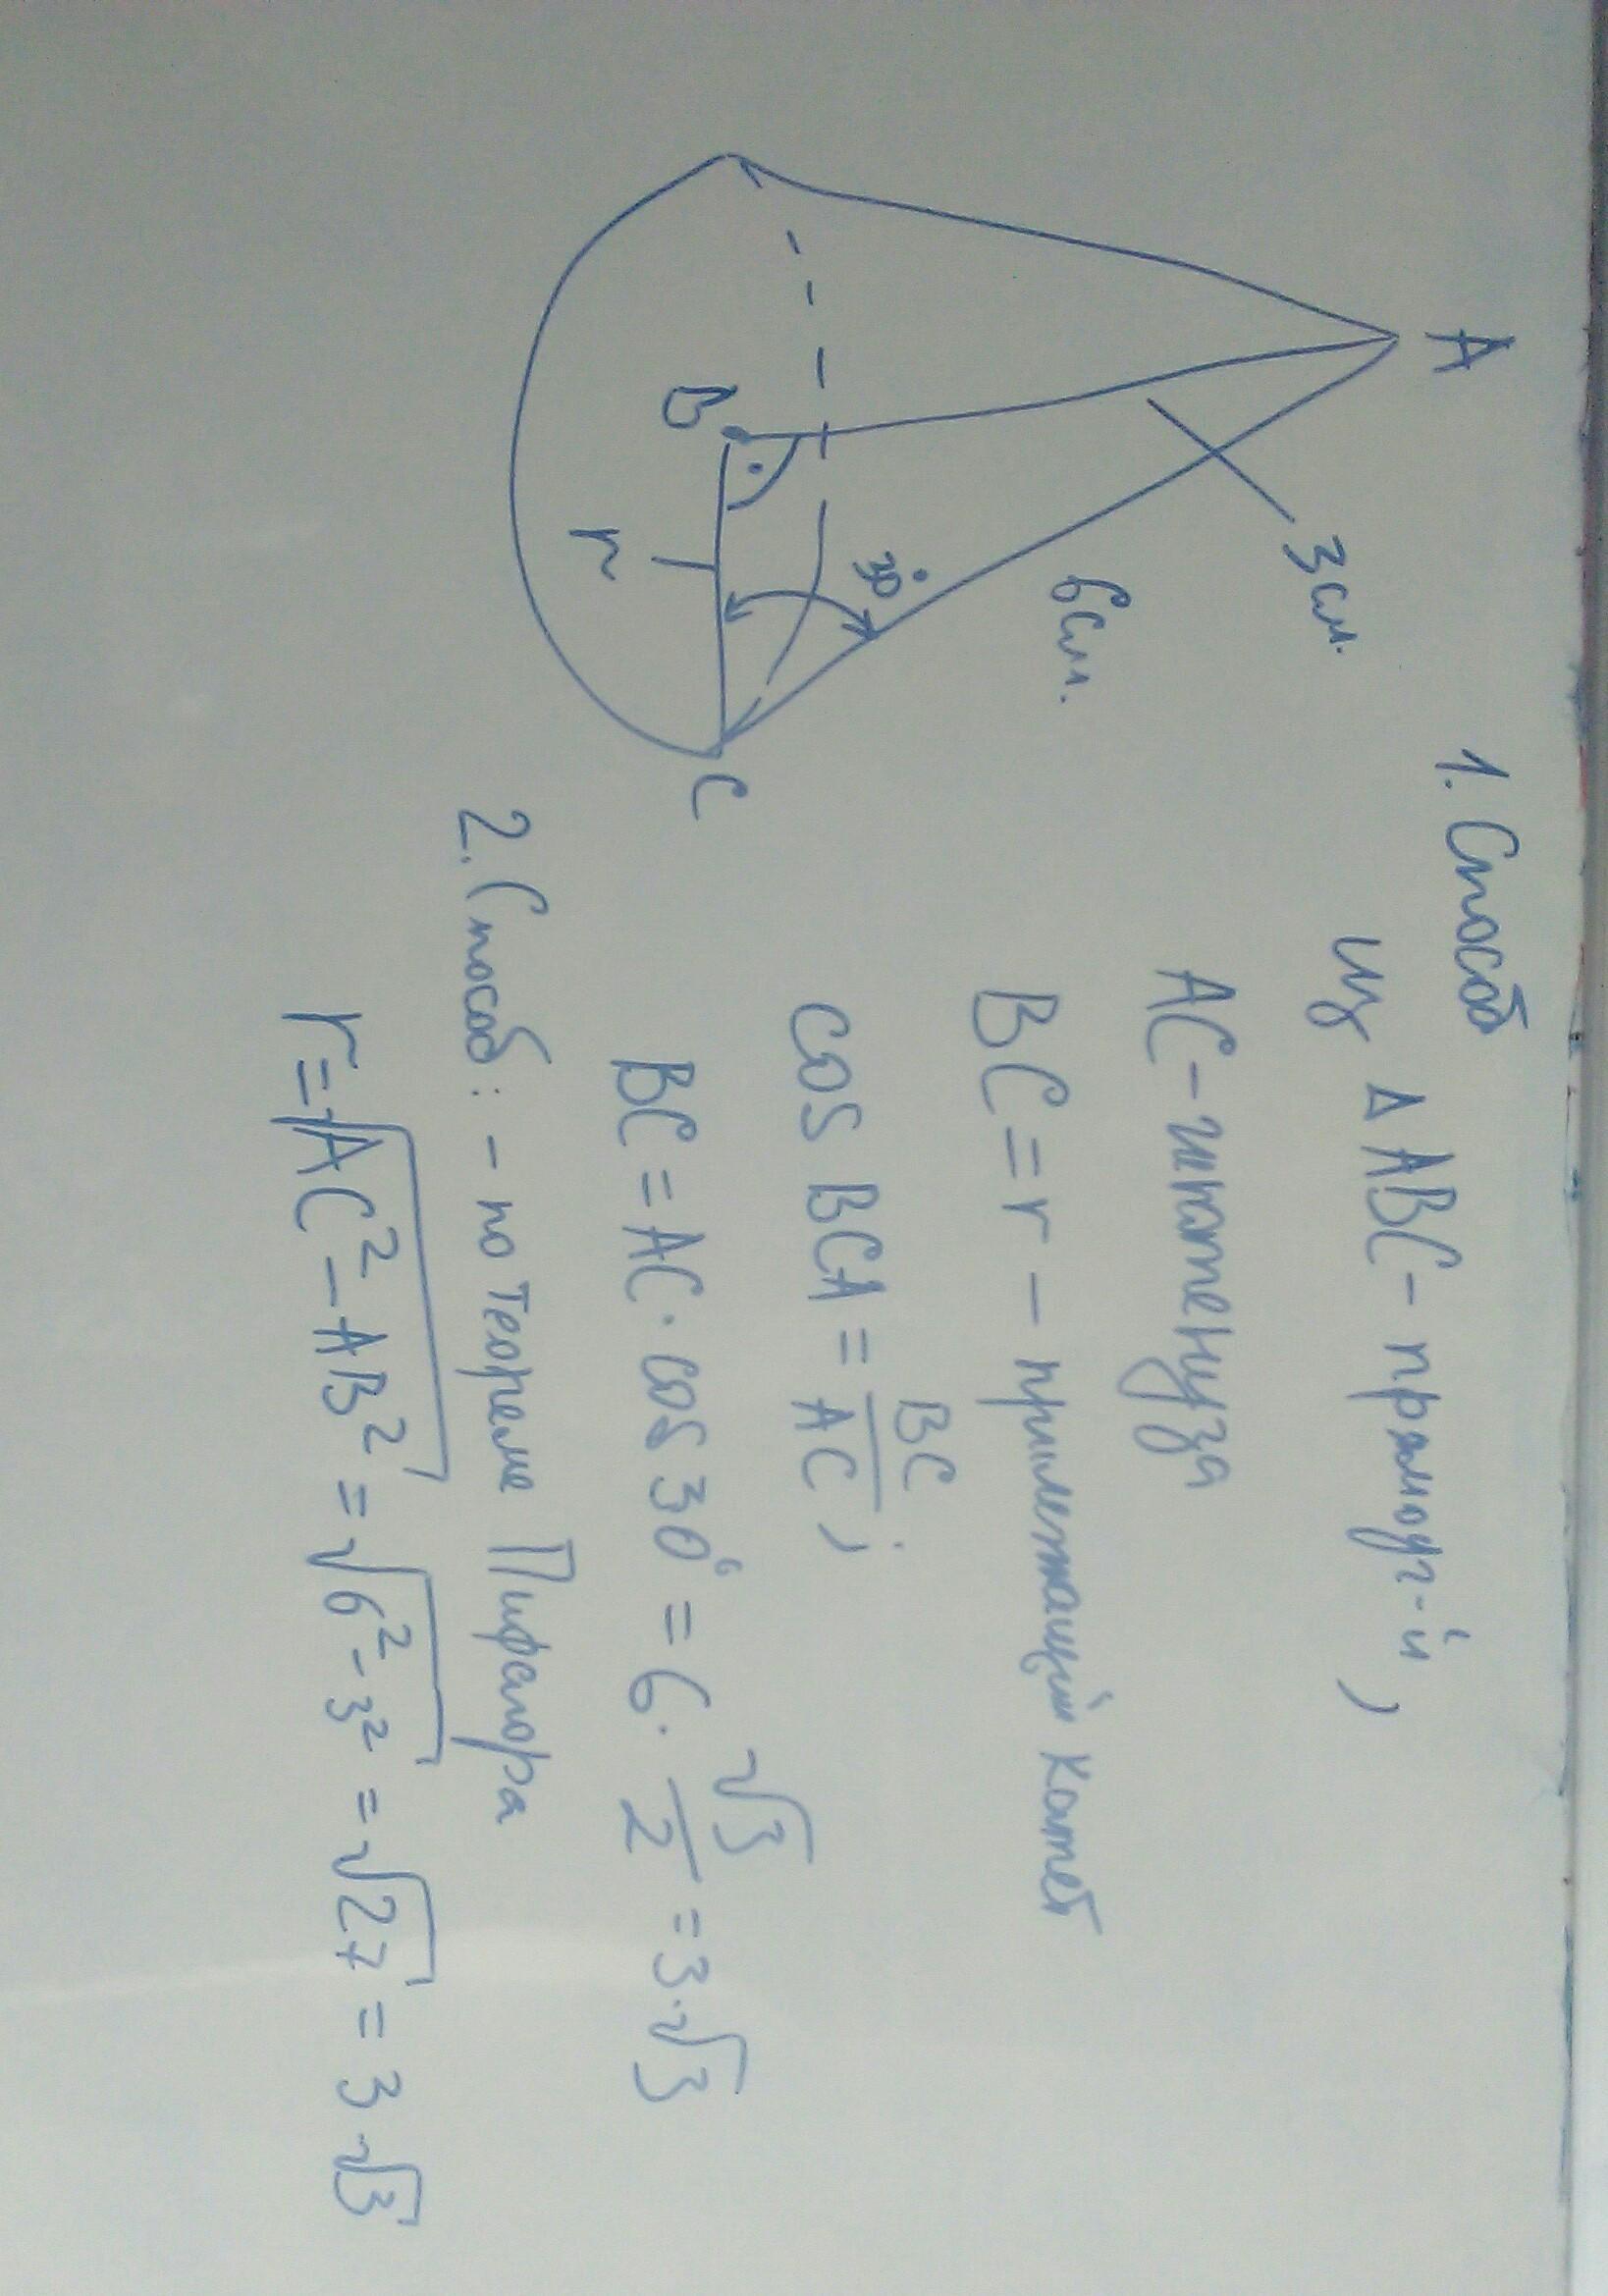 A
3 см.
6 см.
30°
B
r
C
1. Способ
Из Δ ABC - прямоуг-й,
AC - гипотенуза
BC = r - прилежащий катет
cos BCA = BC/AC;
BC = AC · cos 30° = 6 · √3/2 = 3·√3
2. Способ: - по теореме Пифагора
r = √AC² - AB² = √6² - 3² = √27 = 3√3